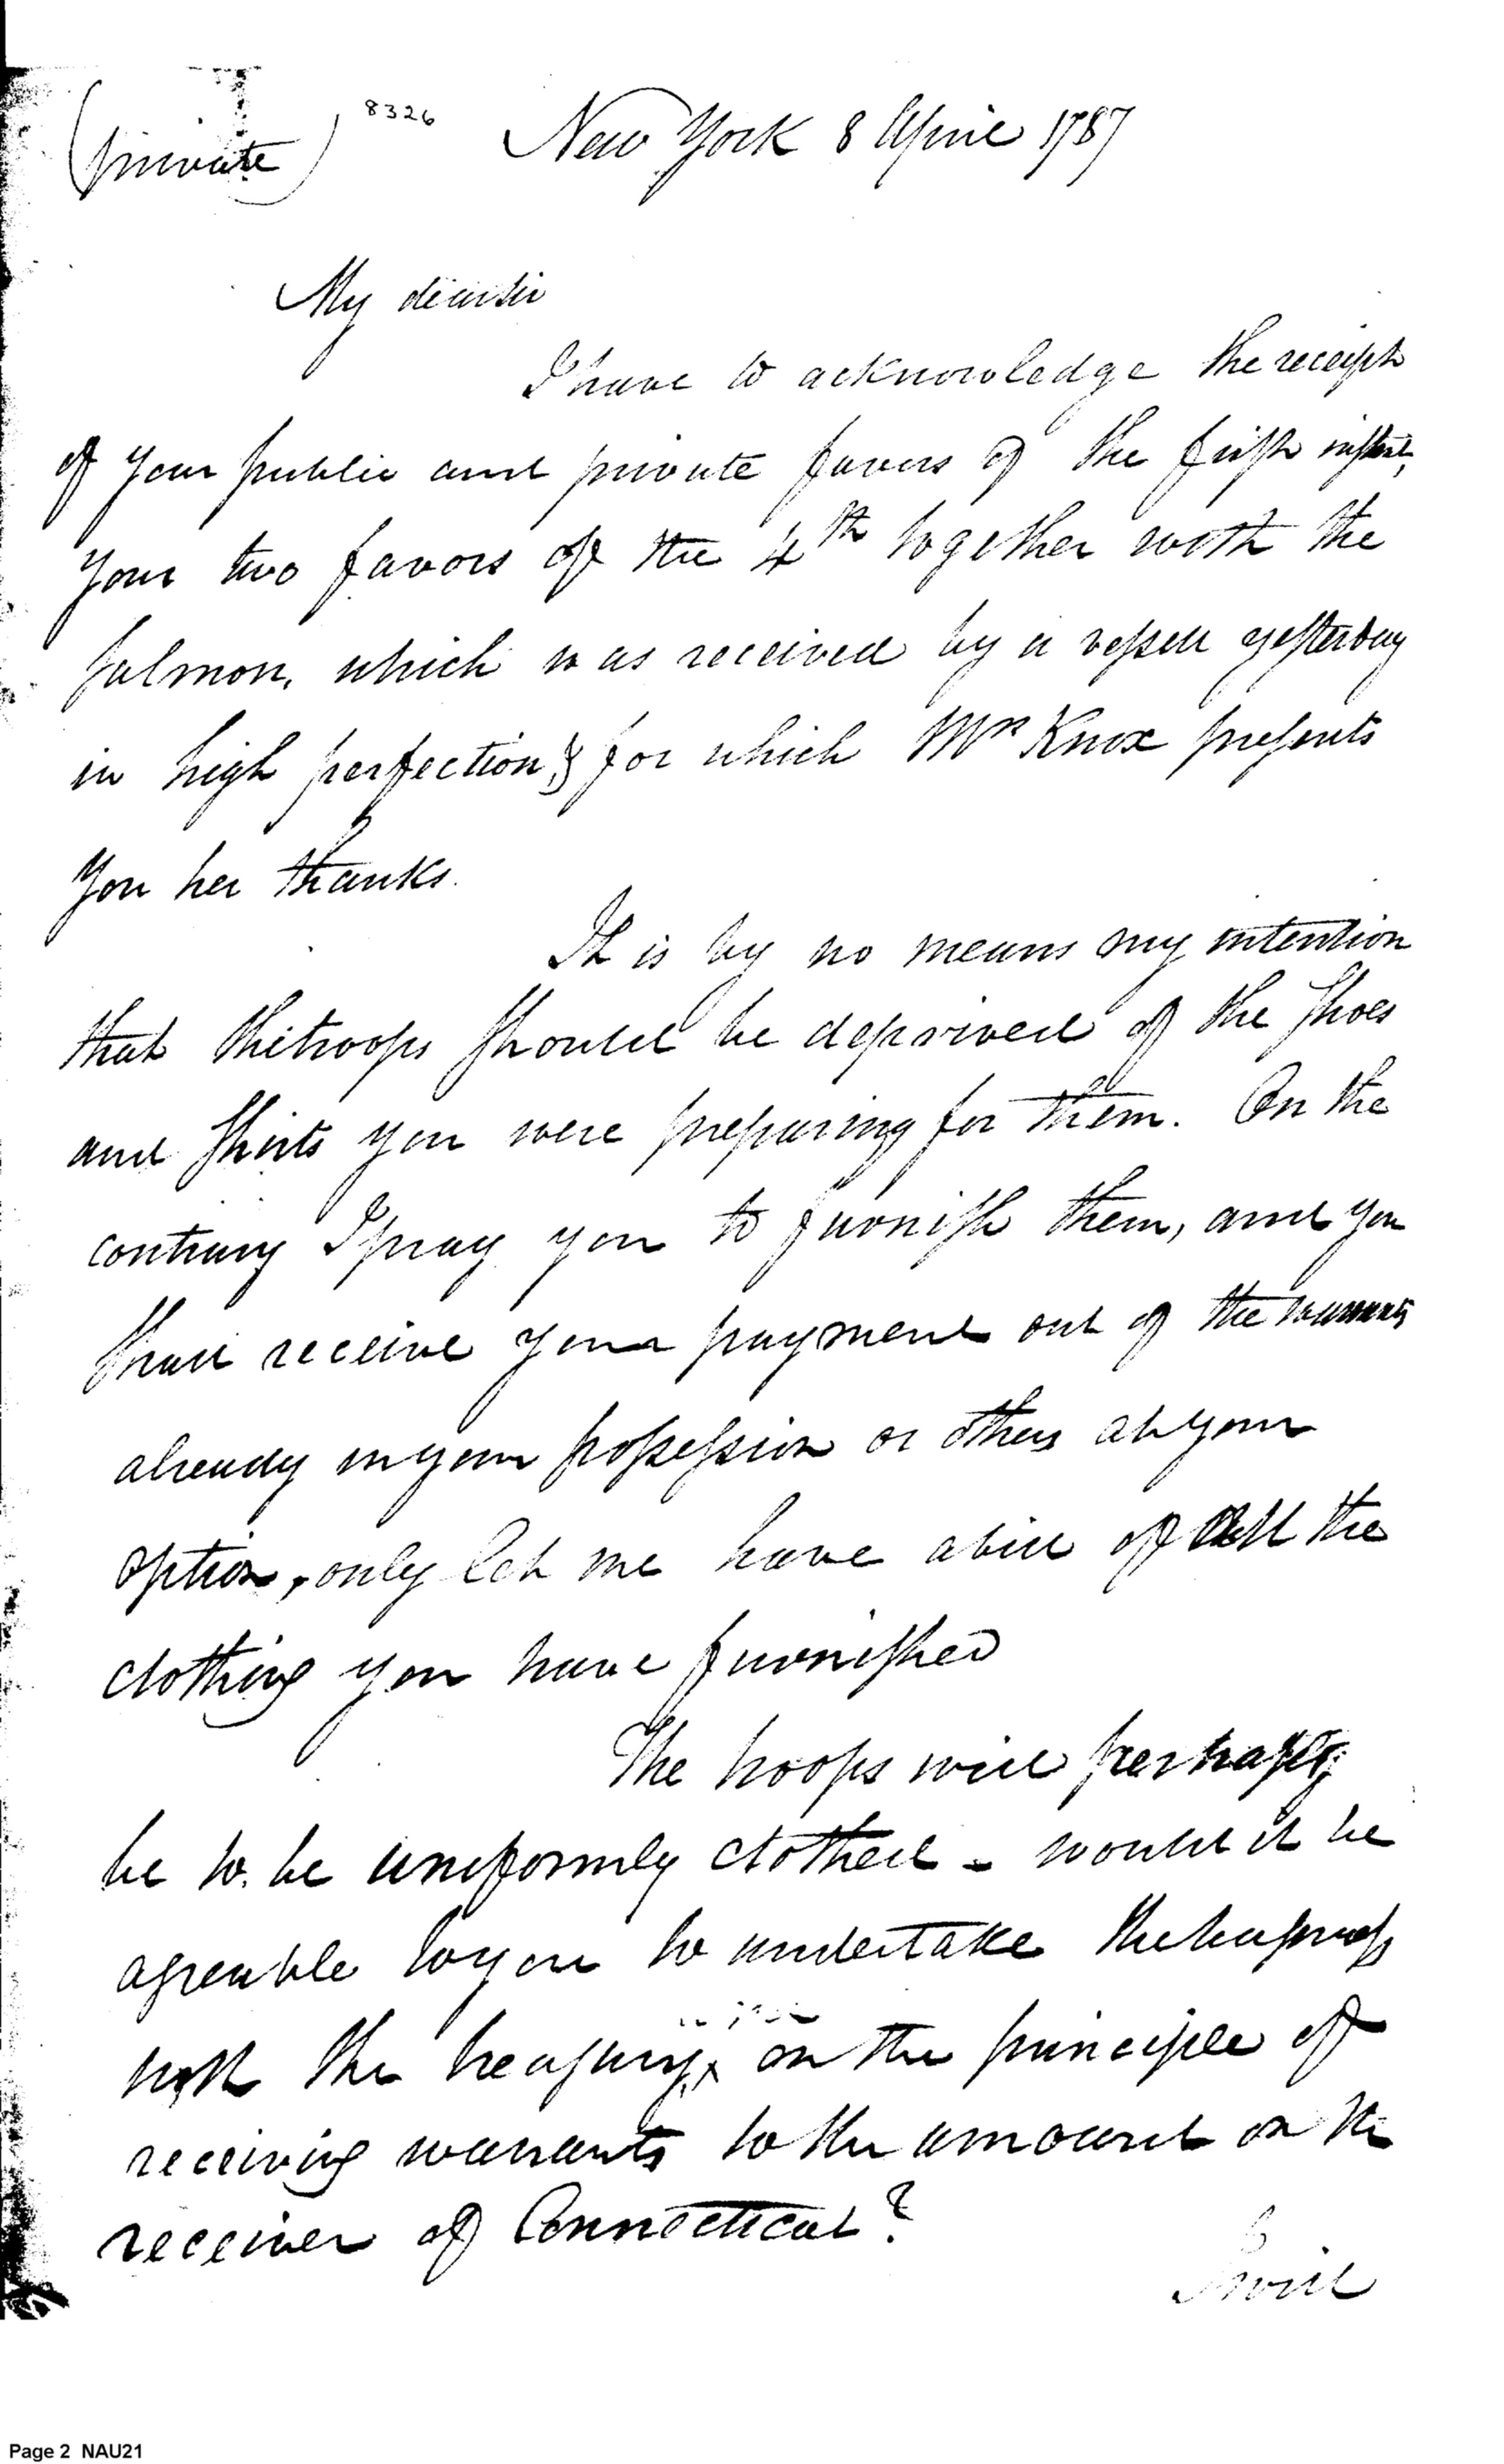 (private)
8326
New York 8 April 1787
My dear sir
I have to acknowledge the receipt
of your public and private favors of the first instant,
your two favors of the 4th together with the
salmon, which was received by a vessell yesterday
in high perfection, & for which Mrs Knox presents
you her thanks.
It is by no means my intention
that the troops should be deprived of the shoes
and shirts you were preparing for them. On the
contrary I pray you to furnish them, and you
shall receive your payment out of the warrants
already in your possession or others at your
option, only let me have a bill of all the
clothing you have furnished
The troops will perhaps
be to be uniformly clothed - would it be
agreable to you to undertake the business
with the treasury, on the principle of
receiving warrants to the amount on the
receiver of Connecticut?
I will
Page 2 NAU21